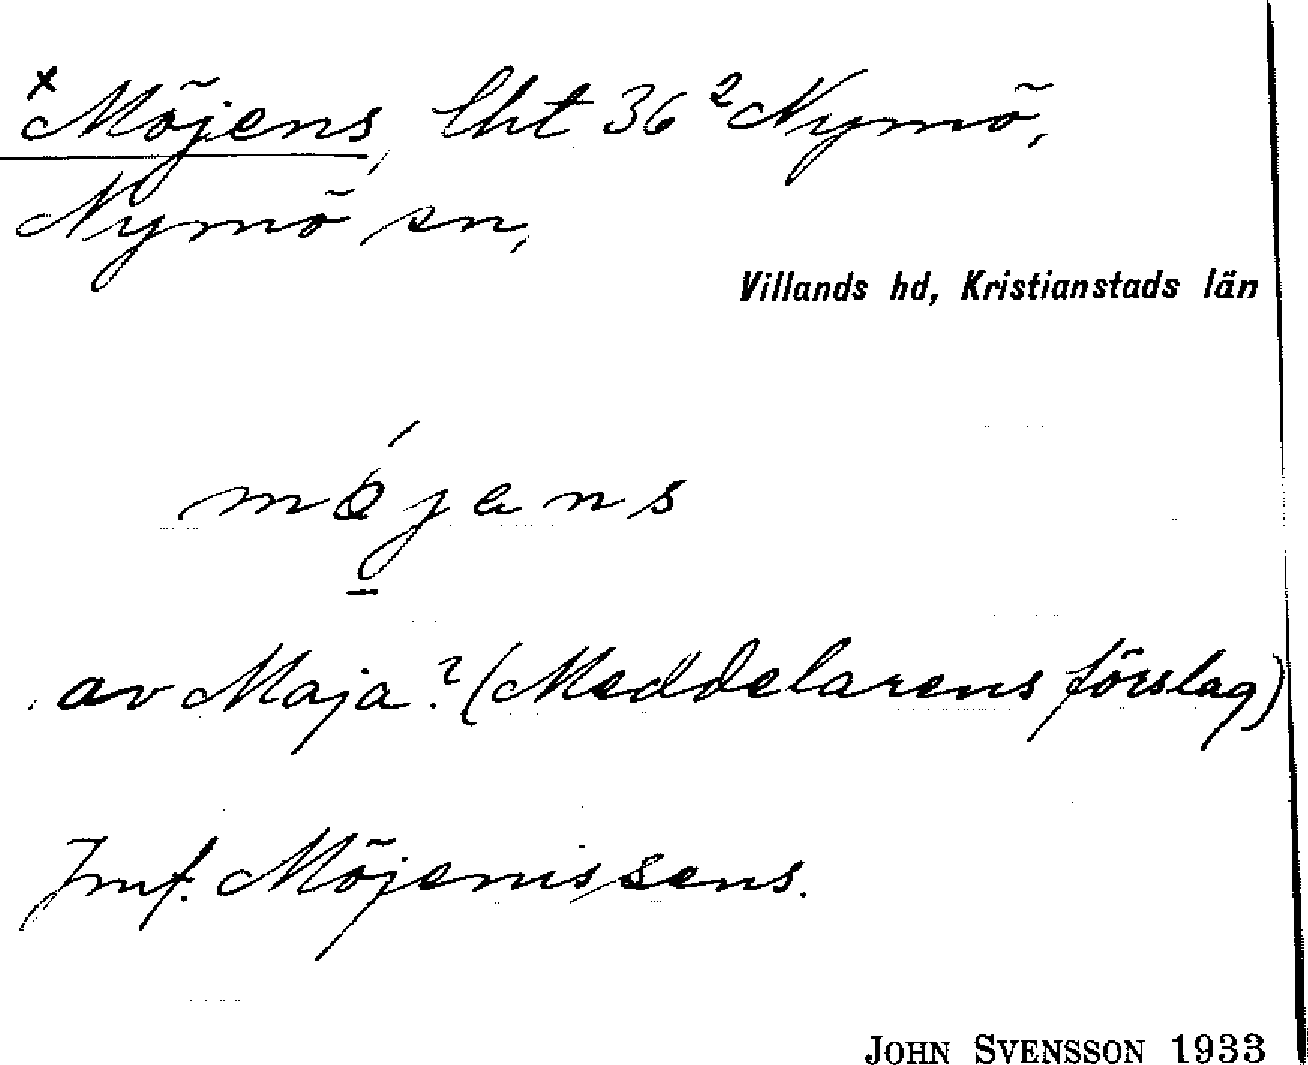 x Möjens, lht 36² Nymö,
Nymö sn,
Villands hd, Kristianstads län
möjens
av Maja? (Meddelarens förslag)
Jmf. Möjenissens.
JOHN SVENSSON 1933